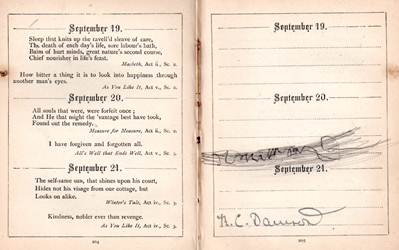 September 19.
Sleep that knits up the ravell'd sleave of care,
Th. death of each day's life, sore labour's bath,
Balm of hurt minds, great nature's second course,
Chief nourisher in life's feast.
Macbeth, Act ii., Sc. 2.
How bitter a thing it is to look into happiness through
another man's eyes.
As You Like It, Act v., Sc. 2.
September 20.
All souls that were, were forfeit once;
And He that might the 'vantage best have took,
Found out the remedy.
Measure for Measure, Act ii., Sc. 2.
I have forgiven and forgotten all.
All's Well that Ends Well, Act v., Sc. 3.
September 21.
The self-same sun, that shines upon his court,
Hides not his visage from our cottage, but
Looks on alike.
Winter's Tale, Act iv., Sc. 3.
Kindness, nobler ever than revenge.
As You Like It, Act iv., Sc. 3.
204
September 19.
September 20.
September 21.
H. C. Dawson
205